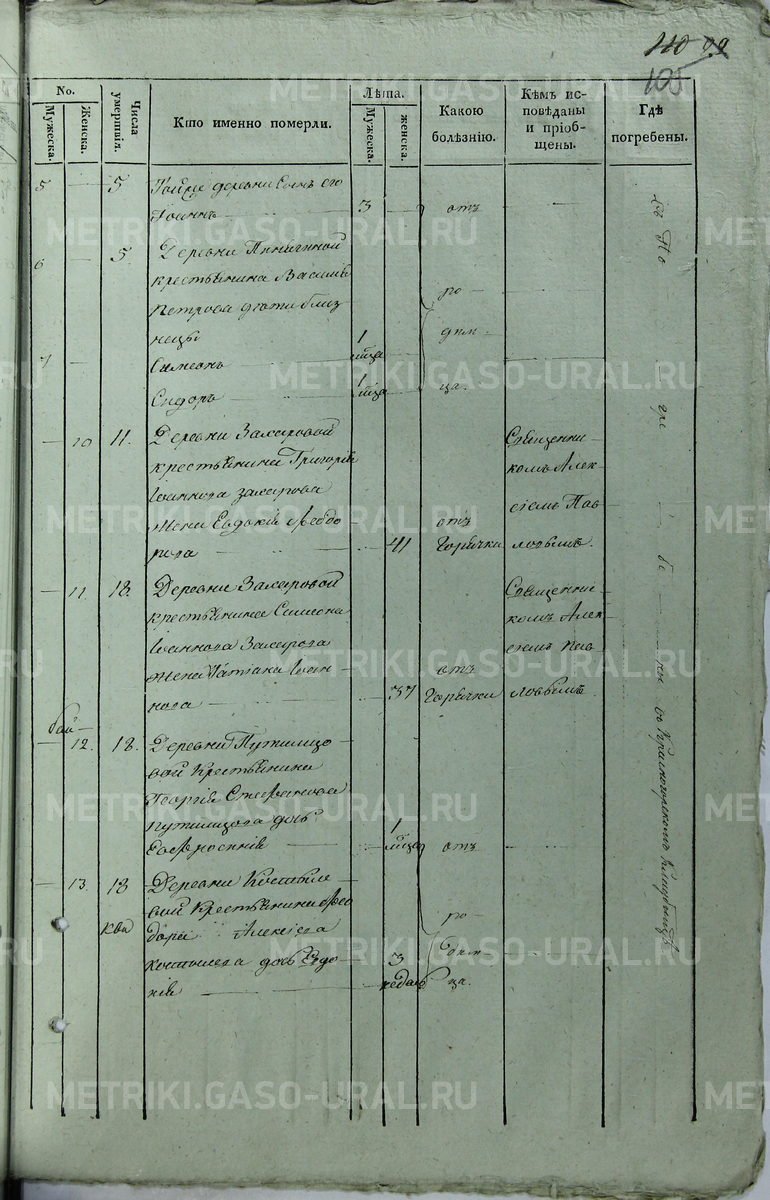 110 99
105
No.
Мужеска.
Женска.
Числа умертвія.
Кто именно померли.
Лѣта.
Мужеска.
женска.
Какою болѣзнію.
Кѣмъ исповѣданы и пріобщены.
Гдѣ погребены.
5 — 5 Тойже деревни Сынъ его
Іоаннъ — 3 отъ
6 5. Деревни
крестьянина Василья
Петрова дѣти близ
нецы
7 Симеонъ — 1 мѣца
Сидоръ — 1 мѣца
ро —
дим —
ца.
— 10 11. Деревни Захаровой
крестьянина Григорія
Іоаннова Захарова
жена Евдокія Феодо
рова — 41
отъ
Горячки
Священни —
комъ Алек —
сіемъ Пав
ловымъ.
— 11. 18. Деревни Захаровой
крестьянина Симеона
Іоаннова Захарова
жена Татіана Іоан —
нова — 37
отъ
Горячки
Священни —
комъ Алек —
сіемъ Пав
ловымъ.
бай —
— 12. 18. Деревни Путилицо —
вой Крестьянина
Георгія Стефанова
Путилицова дочь
Евфросинія — 1 мѣца отъ
— 13. 18 Деревни Костыле —
вой Крестьянина Фео
дора Алексіева
Костылева дочь Евдо
кія — 3 недѣль
ква
ро —
дим —
ца.
Въ По гре бе ны въ кладбищѣ
METRIKI.GASO-URAL.RU